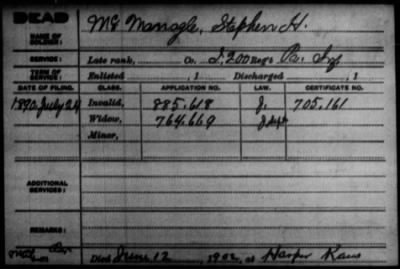 DEAD
NAME OF SOLDIER: Mc Managle, Stephen H.
SERVICE: Late rank, Co. I, 200 Reg't Pa. Inf
TERM OF SERVICE: Enlisted , 1 Discharged , 1
DATE OF FILING. CLASS. APPLICATION NO. LAW. CERTIFICATE NO.
1890, July 24 Invalid, 885.618 J. 705.161
Widow, 764.669
Minor,
ADDITIONAL SERVICES:
REMARKS:
Died June 12, 1902, at Harper Kans